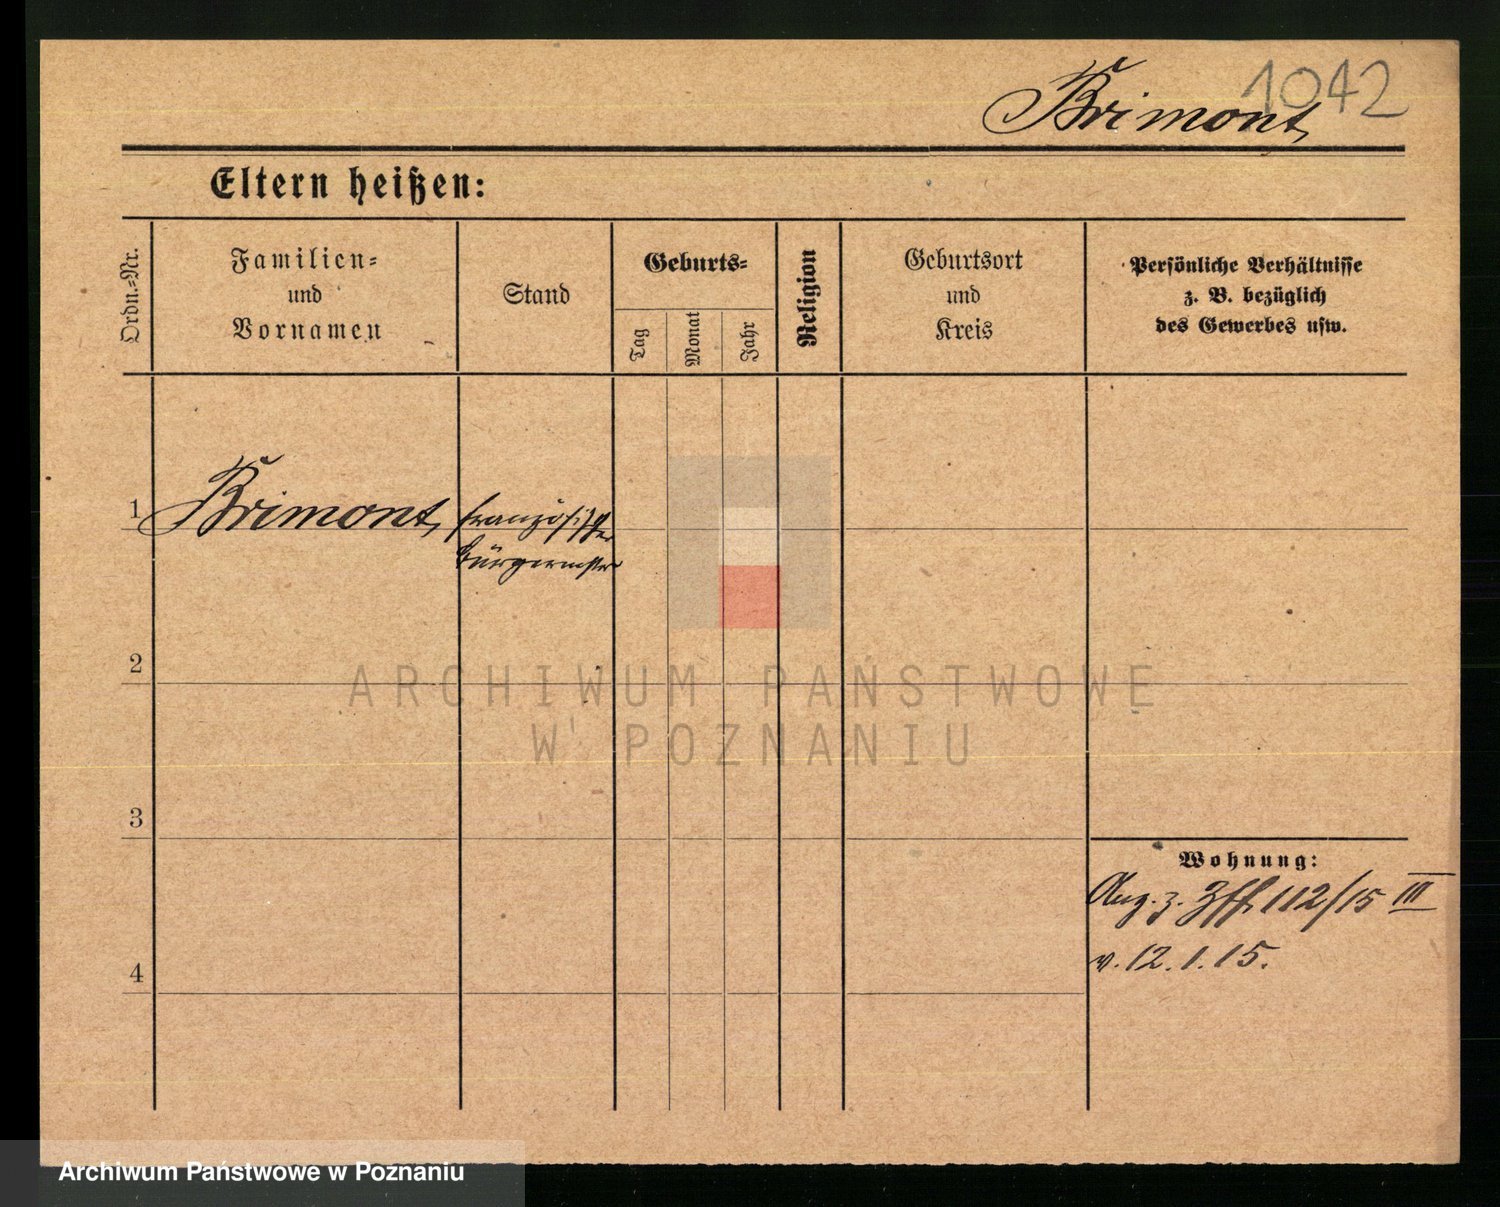 1042
Brimont,
Eltern heißen:
Ordn.-Nr.
Familien-
und
Vornamen
Stand
Geburts-
Tag
Monat
Jahr
Religion
Geburtsort
und
Kreis
Persönliche Verhältnisse
z. B. bezüglich
des Gewerbes usw.
1 Brimont, französischer
Bürgermeister
2
ARCHIWUM PAŃSTWOWE
W POZNANIU
3
Wohnung:
Ang. z. 112/15 III
4 v. 12.1.15.
Archiwum Państwowe w Poznaniu